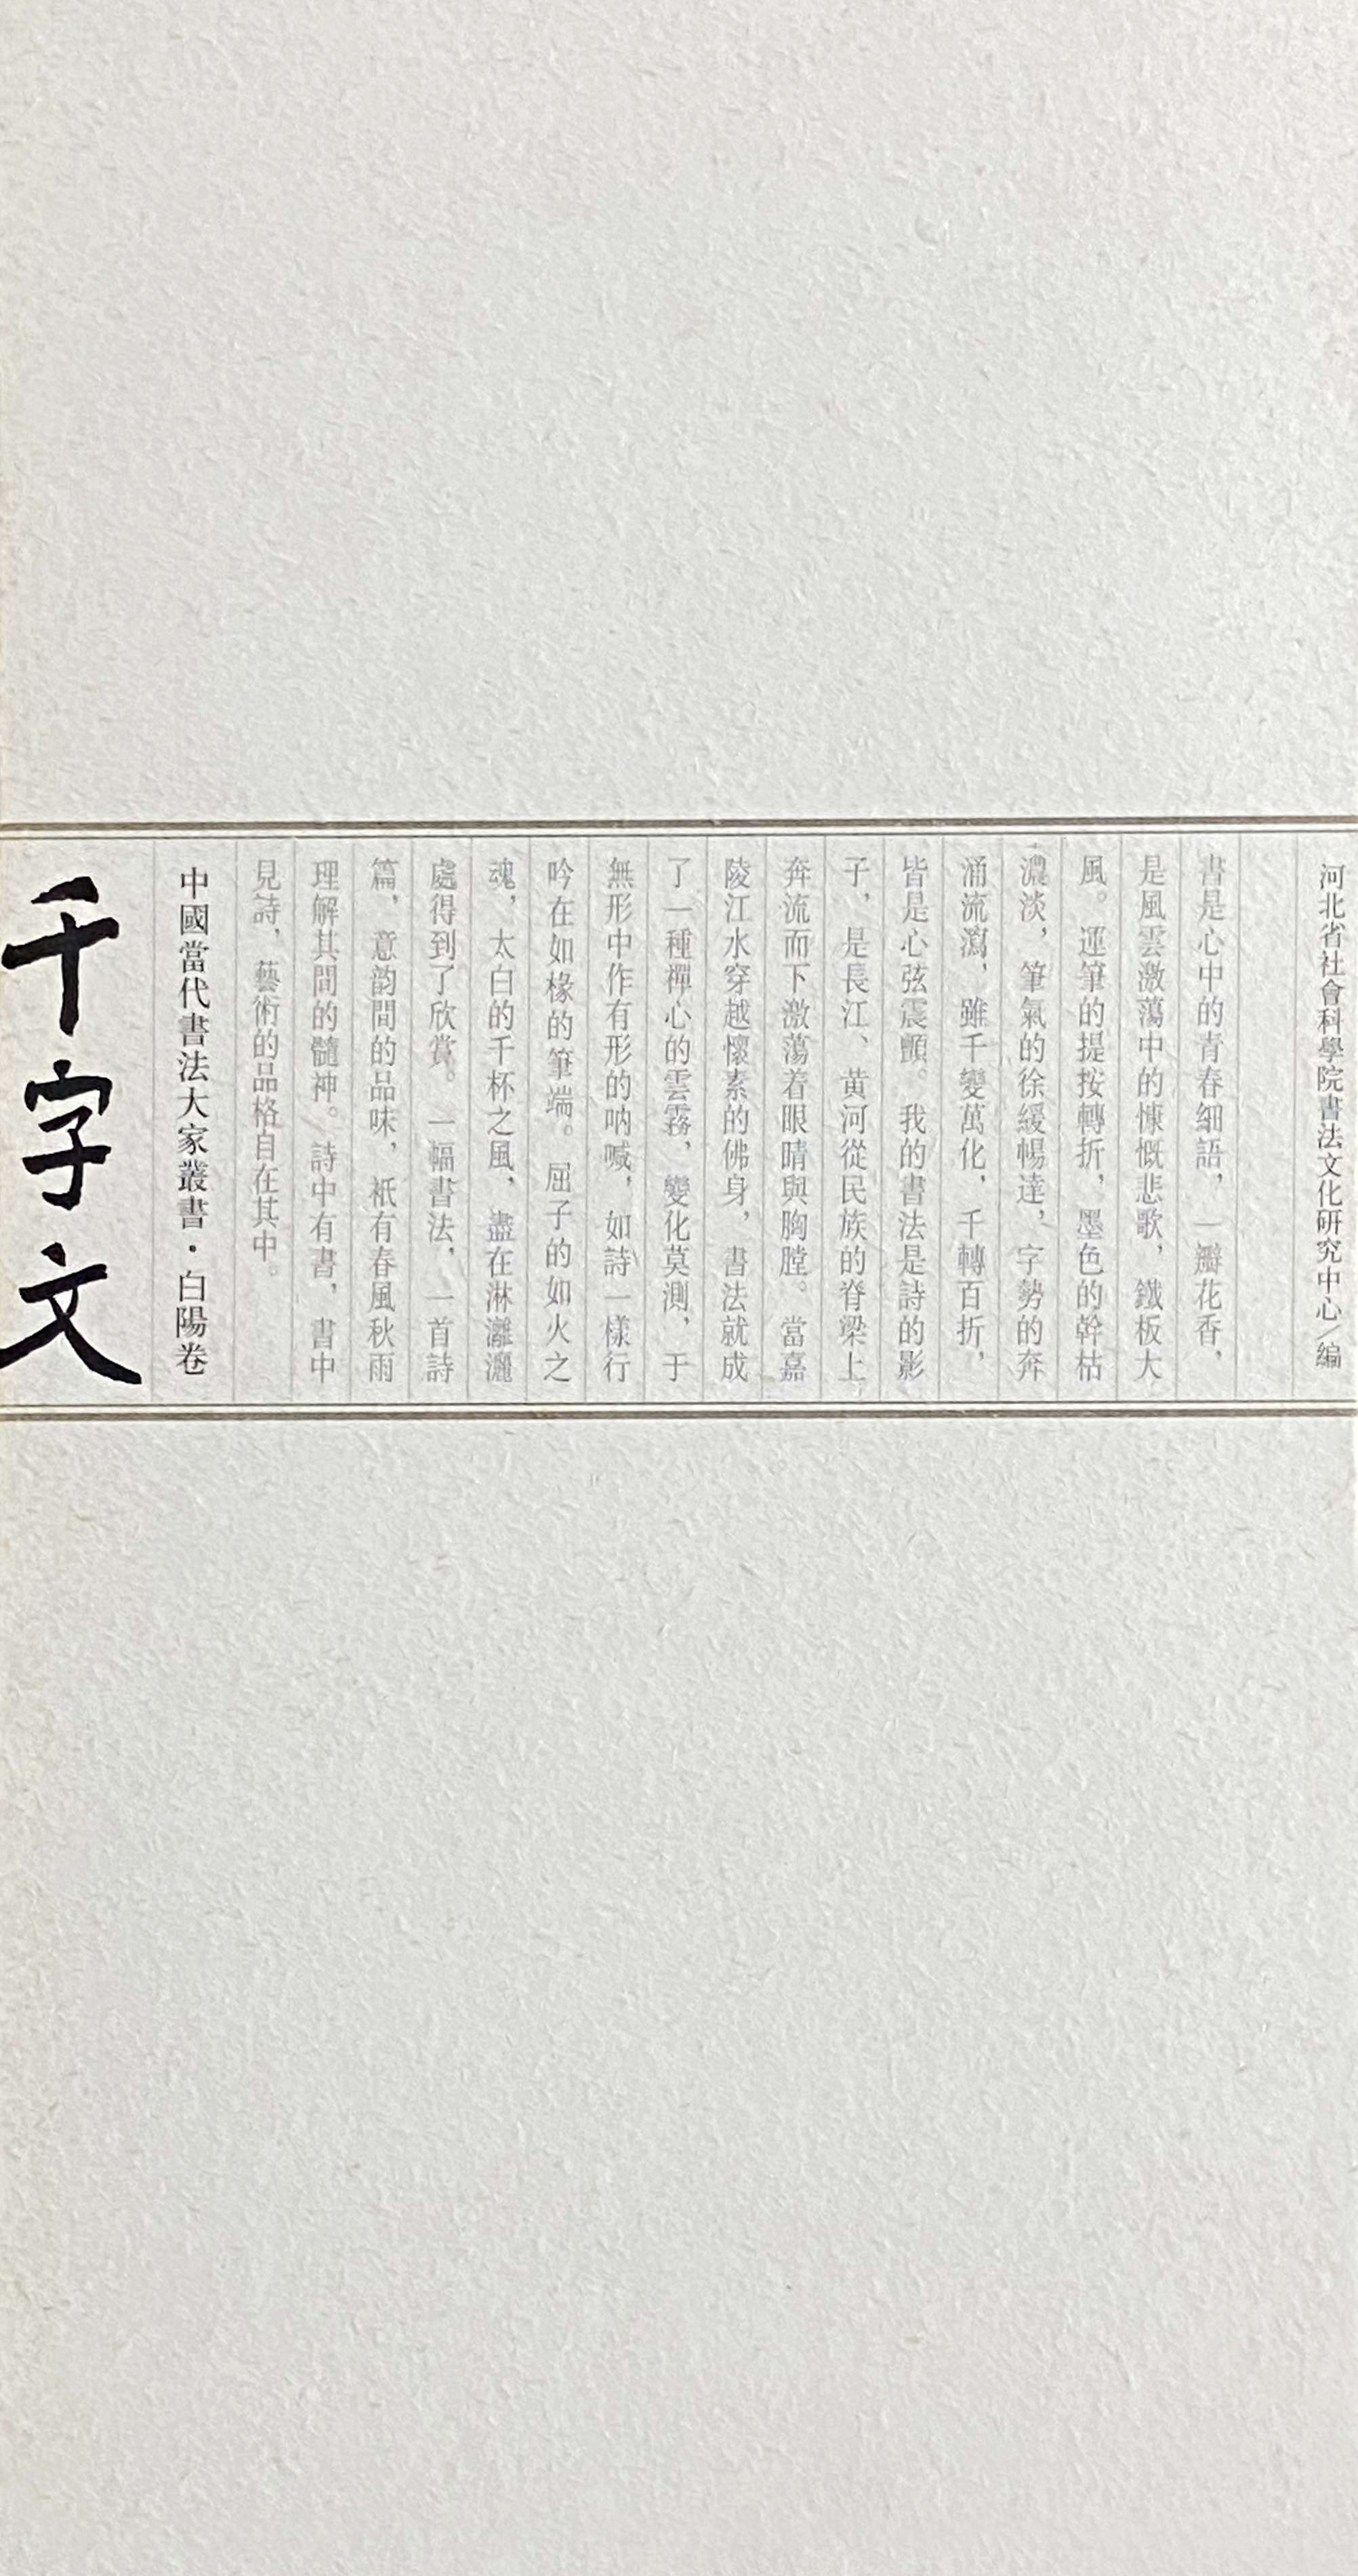 河北省社會科學院書法文化研究中心／編
書是心中的青春細語，一瓣花香，
是風雲激蕩中的慷慨悲歌，鐵板大
風。運筆的提按轉折，墨色的幹枯
濃淡，筆氣的徐緩暢達，字勢的奔
涌流瀉，雖千變萬化，千轉百折，
皆是心弦震顫。我的書法是詩的影
子，是長江、黄河從民族的脊梁上
奔流而下激蕩着眼睛與胸膛。當嘉
陵江水穿越懷素的佛身，書法就成
了一種禪心的雲霧，變化莫測，于
無形中作有形的呐喊，如詩一樣行
吟在如椽的筆端。屈子的如火之
魂，太白的千杯之風，盡在淋灕灑
處得到了欣賞。一幅書法，一首詩
篇，意韵間的品味，衹有春風秋雨
理解其間的髓神。詩中有書，書中
見詩，藝術的品格自在其中。
中國當代書法大家叢書·白陽卷
千字文